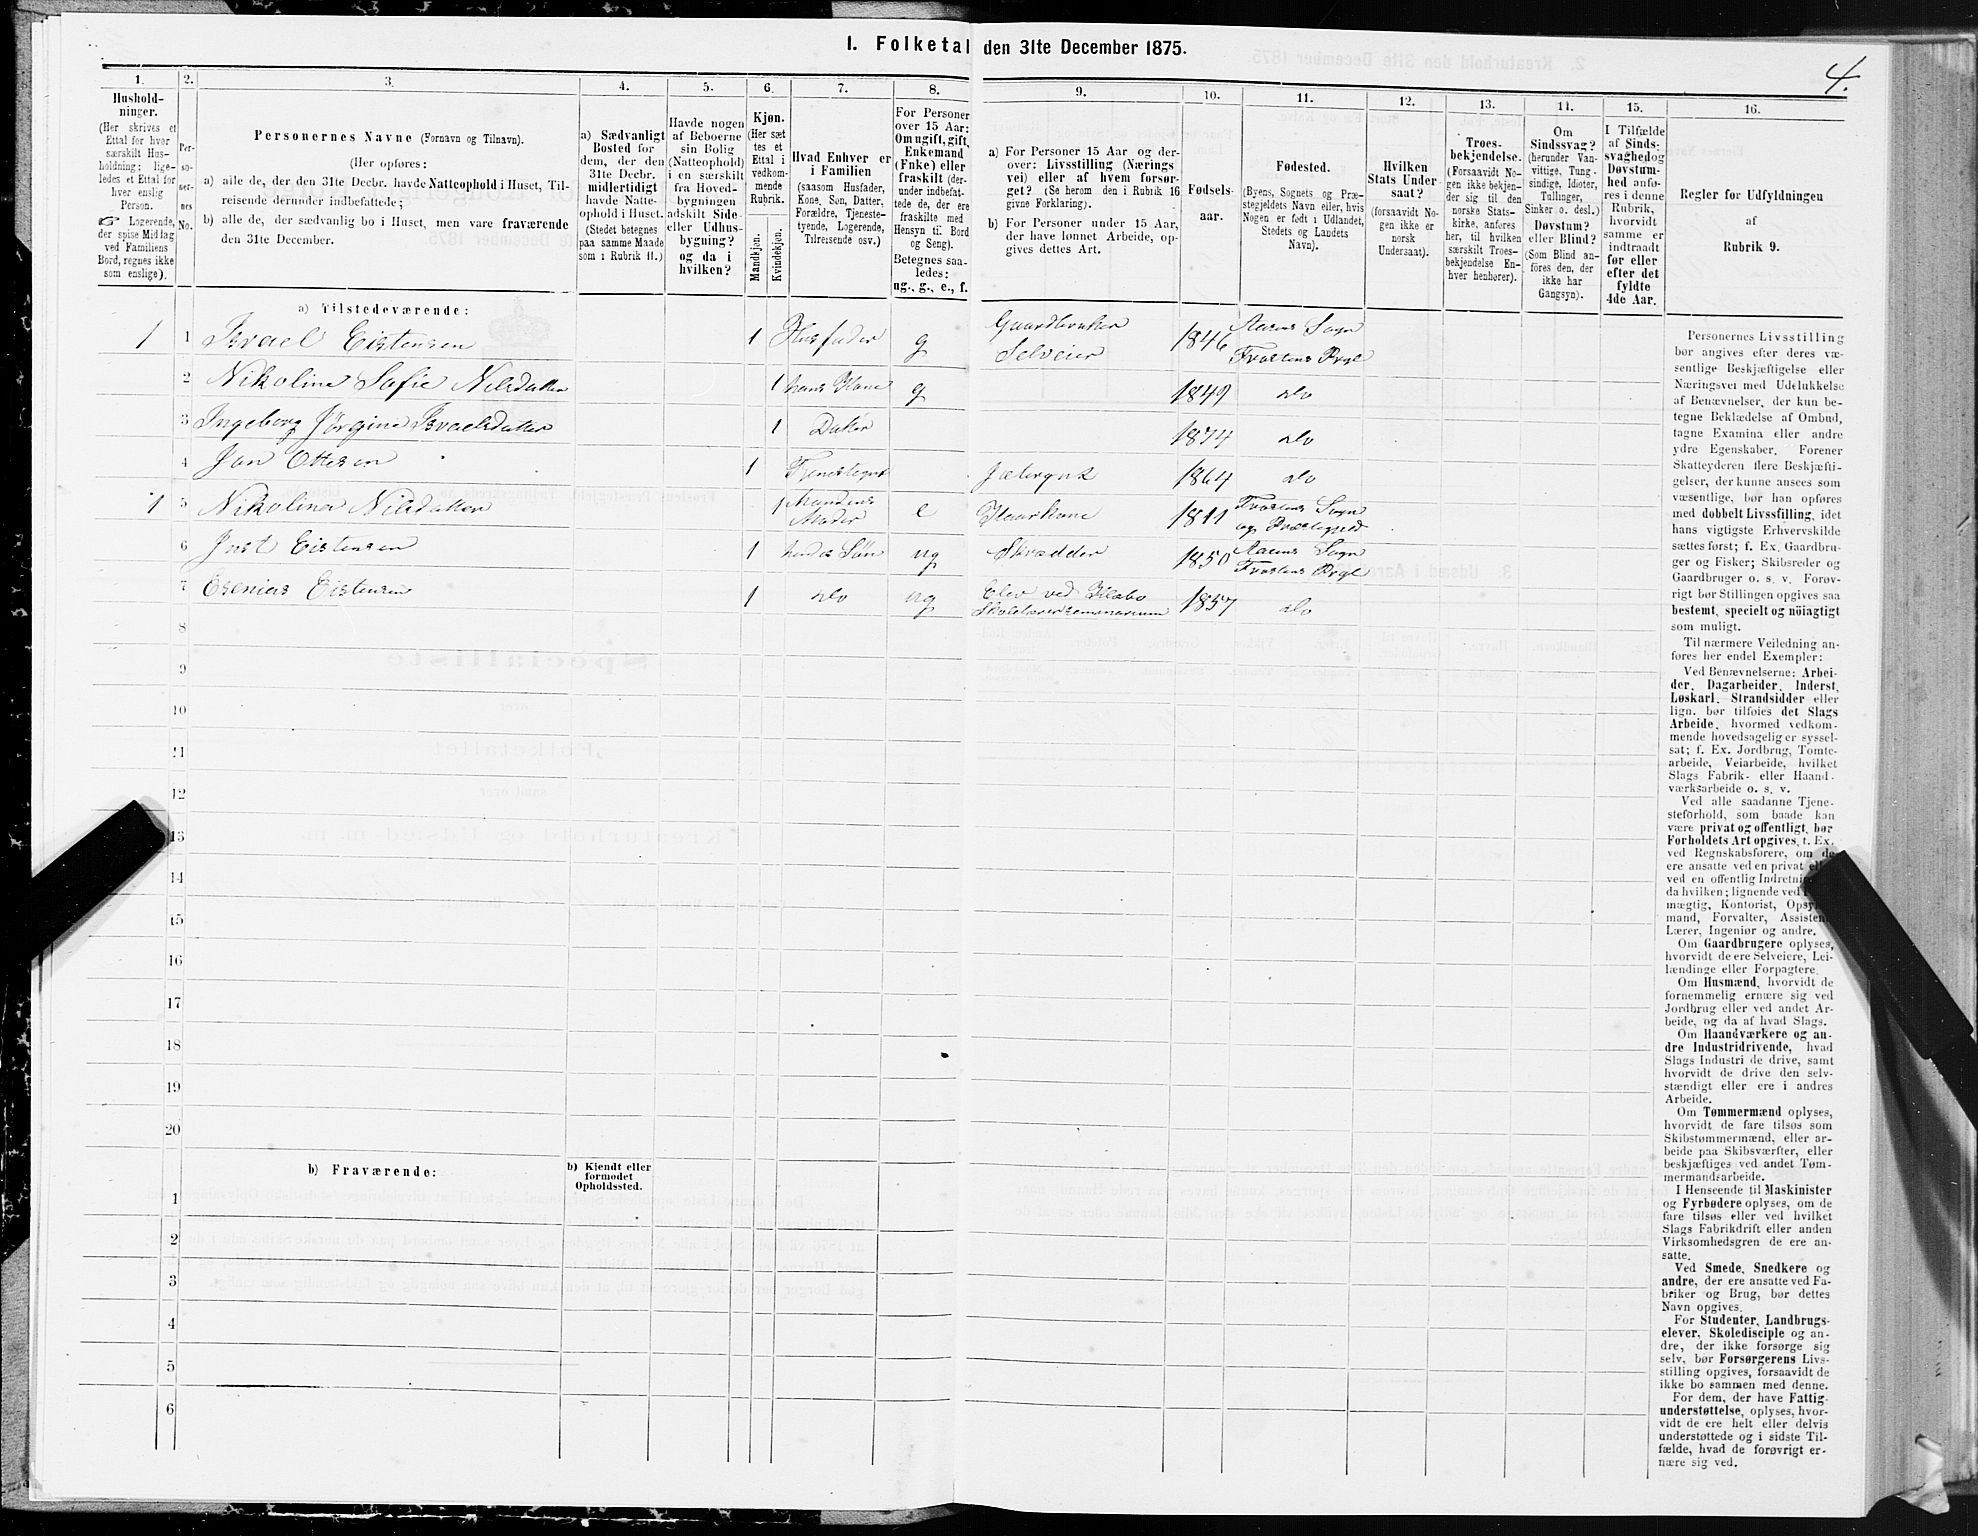 1. Folketal den 31te December 1875.
4.
1. 2. 3. 4. 5. 6. 7. 8. 9. 10. 11. 12. 13. 14. 15. 16.
Hushold-
ninger.
(Her skrives et
Ettal for hver
særskilt Hus-
holdning; lige-
ledes et Ettal for
hver enslig
Person.
☞ Logerende,
der spise Middag
ved Familiens
Bord, regnes ikke
som enslige).
Per-
so-
ner-
nes
No.
Personernes Navne (Fornavn og Tilnavn).
(Her opføres:
a) alle de, der den 31te Decbr. havde Natteophold i Huset, Til-
reisende derunder indbefattede;
b) alle de, der sædvanlig bo i Huset, men vare fraværende
den 31te December.
a) Sædvanligt
Bosted for
dem, der den
31te Decbr.
midlertidigt
havde Natte-
ophold i Huset.
(Stedet betegnes
paa samme Maade
som i Rubrik 11.)
Havde nogen
af Beboerne
sin Bolig
(Natteophold)
i en særskilt
fra Hoved-
bygningen
adskilt Side-
eller Udhus-
bygning?
og da i
hvilken?
Kjøn.
(Her sæt
tes et
Ettal i
vedkom-
mende
Rubrik.
Mandkjøn.
Kvindekjøn.
Hvad Enhver er
i Familien
(saasom Husfader,
Kone, Søn, Datter,
Forældre, Tjeneste-
tyende, Logerende,
Tilreisende osv.)
For Personer
over 15 Aar:
Om ugift, gift,
Enkemand
(Enke) eller
fraskilt (der-
under indbefat-
tede de, der ere
fraskilte med
Hensyn til Bord
og Seng).
Betegnes saa-
ledes:
ug., g., e., f.
a) For Personer 15 Aar og der-
over: Livsstilling (Nærings
vei) eller af hvem forsør-
get? (Se herom den i Rubrik 16
givne Forklaring).
b) For Personer under 15 Aar,
der have lønnet Arbeide, op-
gives dettes Art.
Fødsels-
aar.
Fødested.
(Byens, Sognets og Præ-
stegjeldets Navn eller, hvis
Nogen er født i Udlandet,
Stedets og Landets
Navn).
Hvilken
Stats Under
saat?
(forsaavidt No-
gen ikke er
norsk
Undersaat).
Troes-
bekjendelse.
(Forsaavidt No-
gen ikke bekjen-
der sig til den
norske Stats-
kirke, anføres
her, til hvilken
særskilt Troes-
bekjendelse En-
hver henhører).
Om
Sindssvag?
(herunder Van-
vittige, Tung-
sindige, Idioter,
Tullinger,
Sinker o. desl.)
Døvstum?
eller Blind?
(Som Blind an-
føres den, der
ikke har
Gangsyn).
I Tilfælde
af Sinds-
svaghed og
Døvstum-
hed anfø-
res i denne
Rubrik,
hvorvidt
samme er
indtraadt
før eller
efter det
fyldte
4de Aar.
Regler for Udfyldningen
af
Rubrik 9.
a) Tilstedeværende:
1 1 Israel Eistensen 1 Husfader g Gaardbruker Selveier 1846 Aasens Sogn Frostens Prgl
2 Nikoline Sofie Nilsdatter 1 hans Kone g 1849 do
3 Ingeborg Jørgine Israelsdatter 1 Datter 1874 do
4 Jon Ottesen 1 Tjenestegut Jætergut 1864 do
1 5 Nikolina Nilsdatter 1 Mandens Moder e Kaarkone 1811 Frostens Sogn og Præstegjeld
6 Just Eistensen 1 hendes Søn ug Skrædder 1850 Aasens Sogn Frostens Prgl
7 Esenias Eistensen 1 do ug Elev ved Klæbo Skolelærerseminarium 1857 do
8
9
10
11
12
13
14
15
16
17
18
19
20
b) Fraværende:
b) Kjendt eller
formodet
Opholdssted.
1
2
3
4
5
6
Personernes Livsstilling
bør angives efter deres væ-
sentlige Beskjæftigelse eller
Næringsvei med Udelukkelse
af Benævnelser, der kun be-
tegne Beklædelse af Ombud,
tagne Examina eller andre
ydre Egenskaber. Forener
Skatteyderen flere Beskjæfti-
gelser, der kunne ansees som
væsentlige, bør han opføres
med dobbelt Livsstilling, idet
hans vigtigste Erhvervskilde
sættes først; f. Ex. Gaardbru-
ger og Fisker; Skibsreder og
Gaardbruger o. s. v. Forøv-
rigt bør Stillingen opgives saa
bestemt, specielt og nöiagtigt
som muligt.
Til nærmere Veiledning an-
føres her endel Exempler:
Ved Benævnelserne: Arbei-
der, Dagarbeider, Inderst,
Løskarl, Strandsidder eller
lign. bør tilføies det Slags
Arbeide, hvormed vedkom-
mende hovedsagelig er syssel-
sat; f. Ex. Jordbrug, Tomte-
arbeide, Veiarbeide, hvilket
Slags Fabrik- eller Haand-
værksarbeide o. s. v.
Ved alle saadanne Tjene-
steforhold, som baade kan
være privat og offentligt, bør
Forholdets Art opgives, t. Ex.
ved Regnskabsførere, om de
ere ansatte ved en privat eller
ved en offentlig Indretning
da hvilken; lignende ved
mægtig, Kontorist, Opsyns-
mand, Forvalter, Assistent
Lærer, Ingeniør og andre.
Om Gaardbrugere oplyses,
hvorvidt de ere Selveiere, Lei-
lændinge eller Forpagtere.
Om Husmænd, hvorvidt de
fornemmelig ernære sig ved
Jordbrug eller ved andet Ar-
beide, og da af hvad Slags.
Om Haandværkere og an-
dre Industridrivende, hvad
Slags Industri de drive, samt
hvorvidt de drive den selv-
stændigt eller ere i andres
Arbeide.
Om Tømmermænd oplyses,
hvorvidt de fare tilsøs som
Skibstømmermænd, eller ar-
beide paa Skibsværfter, eller
beskjæftiges ved andet Tøm-
mermandsarbeide.
I Henseende til Maskinister
og Fyrbødere oplyses, om de
fare tilsøs eller ved hvilket
Slags Fabrikdrift eller anden
Virksomhedsgren de ere an-
satte.
Ved Smede, Snedkere og
andre, der ere ansatte ved Fa-
briker og Brug, bør dettes
Navn opgives.
For Studenter, Landbrugs-
elever, Skoledisciple og an-
dre, der ikke forsørge sig
selv, bør Forsørgerens Livs-
stilling opgives, forsaavidt de
ikke bo sammen med denne.
For dem, der have Fattig-
understøttelse, oplyses, hvor-
vidt de ere helt eller delvis
understøttede og i sidste Til-
fælde, hvad de forøvrigt er-
nære sig ved.